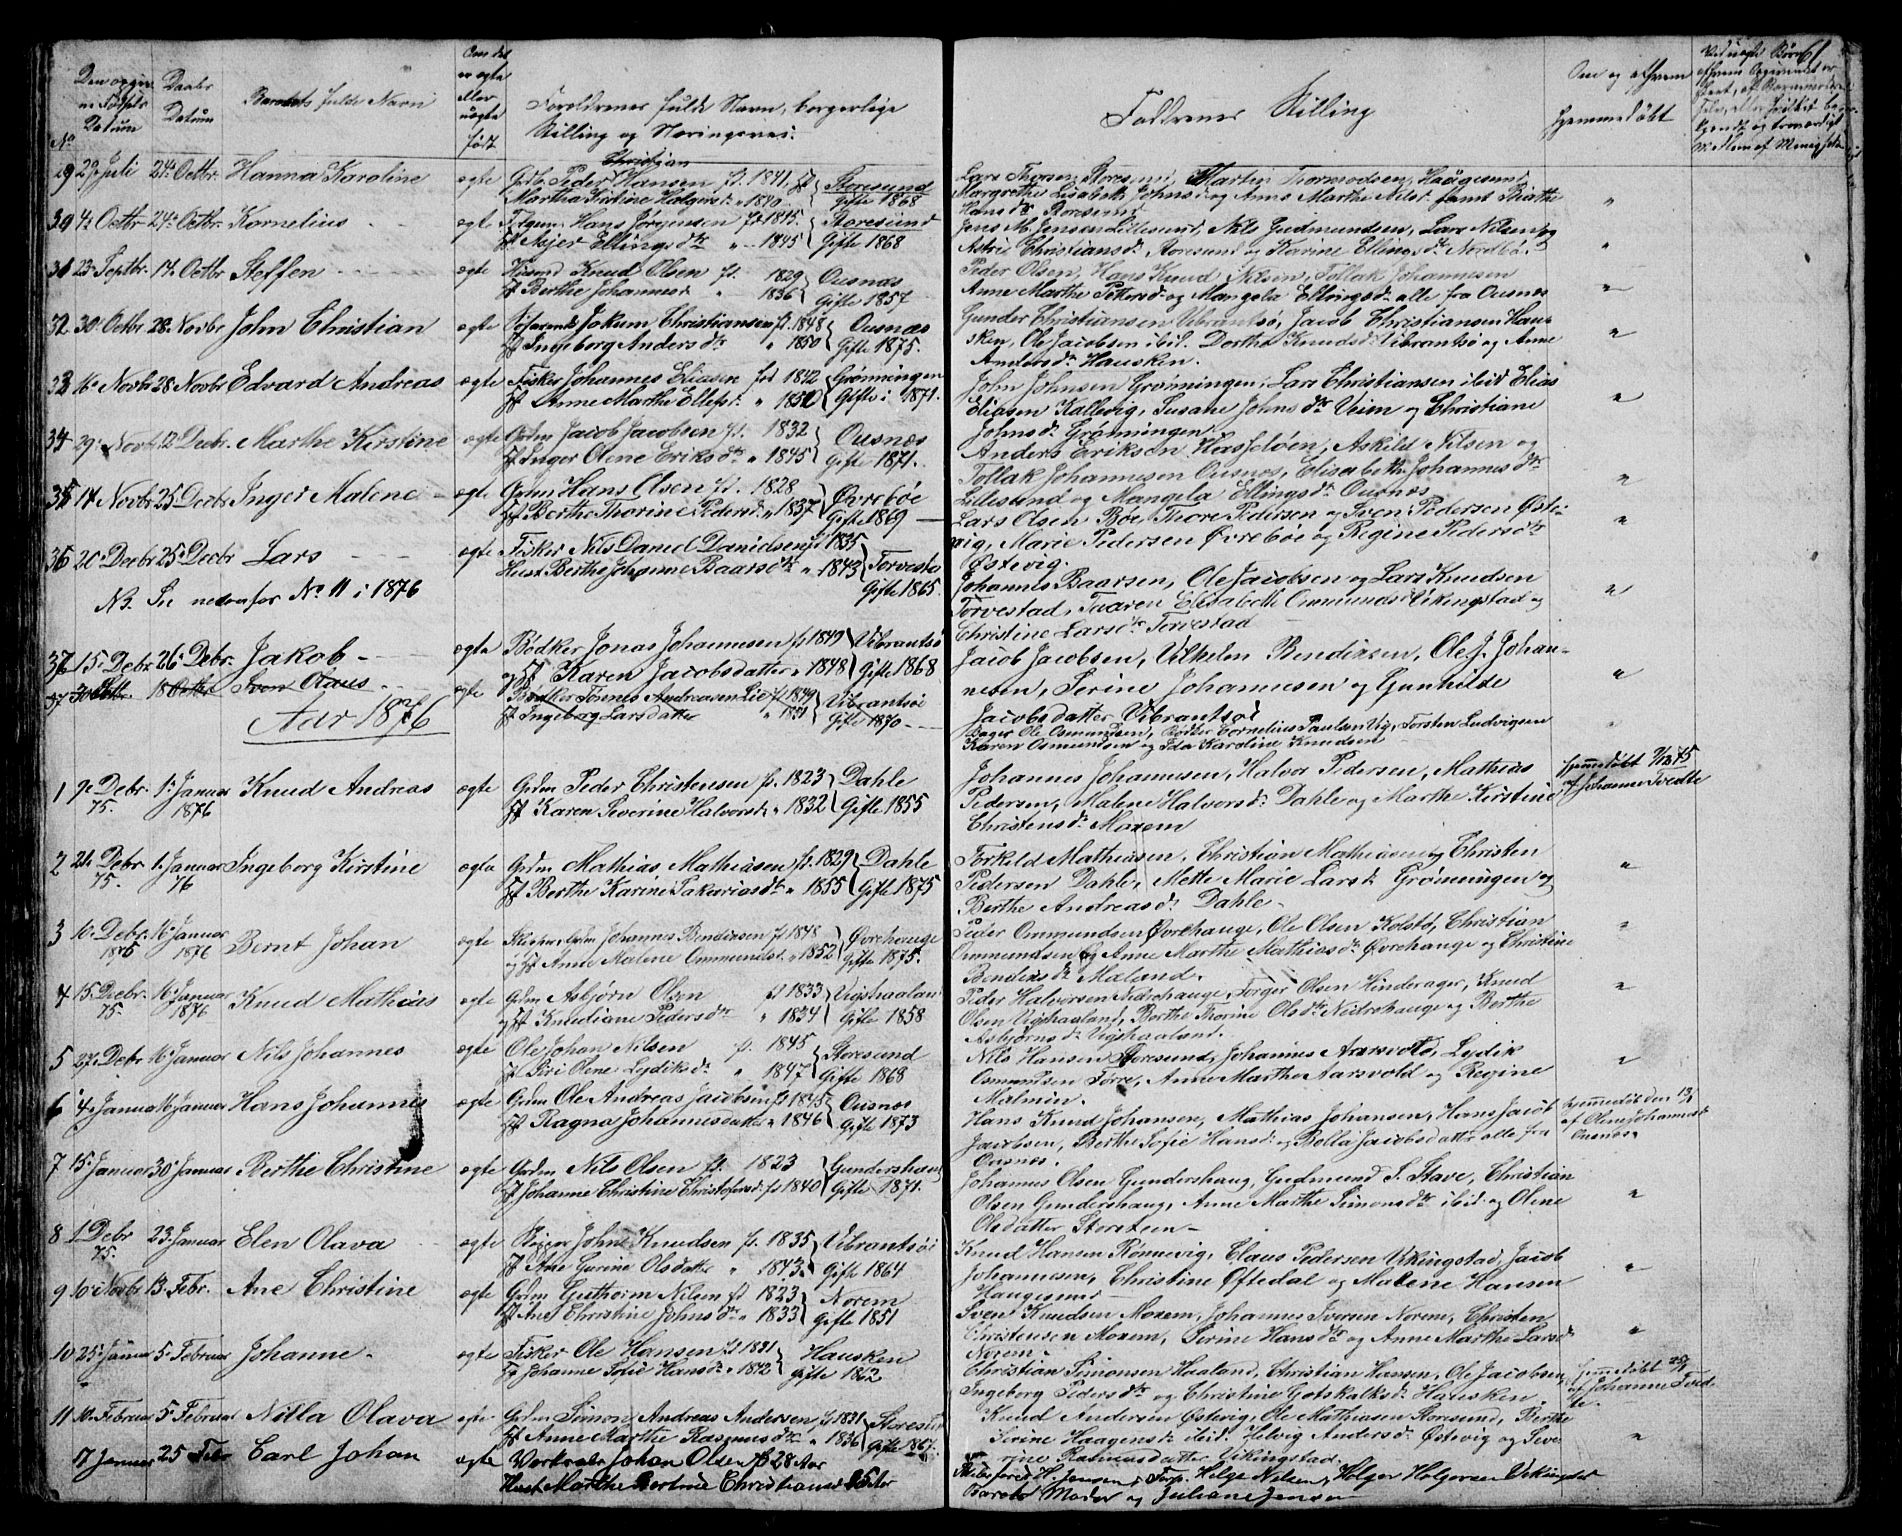 61
No
Den opgivne Fødsels Datum
Daabs Datum
Barnets fulde Navn
Om det er ægte eller uægte født
Forældrenes fulde Navn, borgerlige Stilling og Næringsvei.
Faddernes Stilling
Om og af hvem hjemmedøbt
29 29 Juli 24 Octbr. Hanna Karoline ægte Peder Christian Hansen f. 1841 Storesund
Martha Kirstine Holgersd. 1840 Gifte 1868
Lars Thorsen Storesund, Martin Tormodsen, Haugesund
Margrethe Lisabeth Johnsd. og Anne Marthe Nilsd. samt Birthe
Hansdr. Storesund
30 4 Octbr 24 Octbr. Kornelius ægte Hans Jørgensen f. 1845 Storesund
Asjer Ellingsdtr 1845 Gifte 1868
Jens M. Jensen Lillesund, Nils Gudmundsen, Lars Nilsen og
Astri Christiansd. Storesund og Karine Ellingsdr. Nordbø.
31 23 Septbr. 17 Octbr Steffen ægte Husmd Knud Olsen f. 1829 Ousnæs
Berthe Johannesd. 1836 Gifte 1857
Peder Olsen, Hans Knud Nilsen, Tollak Johannesen
Anne Marthe Pettersd. og Mangela Ellingsd. alle fra Ousnes
32 30 Octbr. 28 Novbr John Christian ægte Jokum Christiansen f. 1848 Ousnæs
Ingeborg Andersdtr 1850 Gifte 1875.
Gunder Christiansen Vibrantsø, Jacob Christiansen Hau-
sken, Ole Jacobsen ibid. Dorthe Knudsd. Vibrantsø og Anne
Andersdr. Hausken.
33 16 Novbr 28 Novbr Edvard Andreas ægte Fisker Johannes Eliasen fød 1842 Grønningen
Anne Marthe Ellefsd. 1850 Gifte i 1871.
John Johnsen Grønningen, Lars Christiansen ibid Elias
Eliasen Kallevig, Susane Johnsdtr Veim og Christiane
Johnsd. Grønningen
34 29 Novb 12 Decbr. Marthe Kirstine ægte Grdm Jacob Jacobsen f. 1832 Ousnæs
Inger Olene Eriksdtr 1845 Gifte 1871.
Anders Eriksen Hasseløen, Askild Nilsen og
Tollak Johannesen Ousnes, Elisabeth Johannesdtr
Lillesund og Mangela Ellingsdr. Ousnæs
35 14 Novbr 25 Decbr Inger Malene ægte Grdm Hans Olsen f. 1828 Øvrebøe
Berthe Thorine Pedersd. 1837 Gifte 1869
Lars Olsen Bøe, Thore Pedersen og Sven Pedersen Øste-
vig, Marie Pedersen Øvrebøe og Regine Pedersdtr
Østevig.
36 20 Decbr 25 Decbr Lars ægte Fisker Nils Daniel Danielsen f. 1835 Torvestad
Hust Berthe Johanne Baarsdtr 1843 Gifte 1865.
Johannes Baarsen, Ole Jacobsen og Lars Knudsen
Torvestad, Elisabeth Ommundsd. Vikingstad og
Christine Larsdtr Torvestad
NB. Se nedenfor No 11 i 1876
37 15 Debr 26 Debr. Jakob ægte Bødker Jonas Johannesen f. 1849 Vibrantsø
Karen Jacobsdatter 1848 Gifte 1868
Jacob Jacobsen, Vilhelm Bendixsen, Ole J. Johan-
nesen, Serine Johannesen og Gunhilde
Jacobsdatter Vibrantsø
37 30 Septbr. 18 Octbr Sven Olaus ægte Bødker Tønnes Andreasen Lie f. 1849 Vibrantsøe
Ingeborg Larsdatter 1851 Gifte 1870
Bager Ole Osmundsen, Bødker Cornelius Paulsen Vig, Torsten Ludvigsen
Karen Osmundsen og Ida Karoline Knudsen
Aar 1876
1 9 Debr. 75. 1 Januar 1876 Knud Andreas ægte Grdm Peder Christensen f. 1823 Dahle
Karen Severine Halvorsd. 1832 Gifte 1855
Johannes Johannesen, Halvor Pedersen, Mathias
Pedersen, Malene Halvorsd. Dahle og Marthe Kirstine
Christensd. Moxem
hjemmedøbt 75
af Johanne Tvedte
2 21 Debr 75. 1 Januar 76 Ingeborg Kirstine ægte Grdm Mathias Mathiasen f. 1829 Dahle
Berthe Karine Sakariasdtr 1855 Gifte 1875
Torkild Mathiasen, Christian Mathiasen og Christen
Pedersen Dahle, Mette Marie Larsd. Grønningen og
Berthe Andreasd. Dahle
3 10 Debr. 1875 16 Januar 1876 Bernt Johan ægte Grdm Johannes Bendixsen f. 1848 Øvrehauge
og Anne Malene Ommundsd. 1852 Gifte 1875.
Peder Ommundsen Øvrehauge, Ole Olsen Kolstø, Christian
Ommundsen og Anne Marthe Mathiasdr. Øvrehauge og Christine
Bendixsdr. Maland.
4 15 Decbr. 75. 16 Januar 1876 Knud Mathias ægte Grdm Asbjørn Olsen f. 1833 Vigshaaland
Knudiane Pedersdtr 1834 Gifte 1858
Peder Halvorsen Nedrehauge, Torger Olsen Hinderager, Knud
Olsen Vigshaaland, Berthe Thorine Olsdtr Nedrehauge og Berthe
Asbjørnsdr. Vigshaaland.
5 27 Debr 16 Januar Nils Johannes ægte Ole Johan Nilsen f. 1845 Storesund
Siri Oline Lydiksd. 1847 Gifte 1868
Nils Hansen Storesund, Johannes Aarsvold, Lydik
Osmundsen Førre, Anne Marthe Aarsvold og Regine
Malmin.
6 4 Januar 16 Januar Hans Johannes ægte Grdm Ole Andreas Jacobsen f. 1845 Ousnæs
Ragna Johannesdatter 1846 Gifte 1873
Hans Knud Johansen, Mathias Johansen, Hans Jacob
Jacobsen, Berthe Sofie Hansd. og Bolla Jacobsdatter alle fra
Ousnæs.
hjemmedøbt den 13/1
af Oline Johannesd.
Ousnæs
7 15 Januar 30 Januar Berthe Christine ægte Grdm Nils Olsen f. 1823 Gundershaug
Johanne Christine Christofersd. f. 1840 Gifte 1871.
Johannes Olsen Gundershaug, Gudmund S. Stave, Christian
Olsen Gundershaug, Anne Marthe Simonsdtr ibid. og Olene
Olsdatter Storsteen
8 1 Debr 75. 23 Januar Elen Olava ægte John Knudsen f. 1835 Vibrantsøe
Ane Gurine Olsdatter 1843 Gifte 1864
Knud Hansen Rønnevig, Claus Pedersen Vikingstad, Jacob
Johannesen, Christine Oftedal og Malene Hansen
Haugesund
9 10 Novbr 13 Febr. Ane Christine ægte Grdm Gutthorm Nilsen f. 1823 Norem
Ane Christine Johnsdtr 1833 Gifte 1851
Sven Knudsen Moxem, Johannes Iversen Norem, Christen
Christensen Moxem, Serine Hansdtr og Anne Marthe Larsd.
Norem
10 25 Januar 5 Februar Johanne ægte Fisker Ole Hansen f. 1831 Hausken
Johanne Sofie Hansdr. 1842 Gifte 1862
Christian Simonsen Haaland, Christian Hansen, Ole Jacobsen
Ingeborg Pedersdtr og Christine Gotskalksd. Hausken
hjemmedøbt
af Johanne Tved-
te.
11 10 Februar 5 Februar Nilla Olava ægte Grdm Simon Andreas Andersen f. 1831 Storesund
Anne Marthe Rasmusdtr 1836 Gifte 1867.
Knud Andersen Østevig, Ole Mathiasen Storesund, Berthe
Serine Haagensd. ibid. Helvig Andersd. Østevig og Seve-
rine Rasmusdatter Vikingstad.
17 Januar 25 Febr Carl Johan ægte Johan Olsen 28 Aar
Hust Marthe Bertine Christiansd. 25 Aar
H. Jensen, Helge Nilsen, Holger Holgersen Vikingstad
Barnets Moder og Juliane Jensen